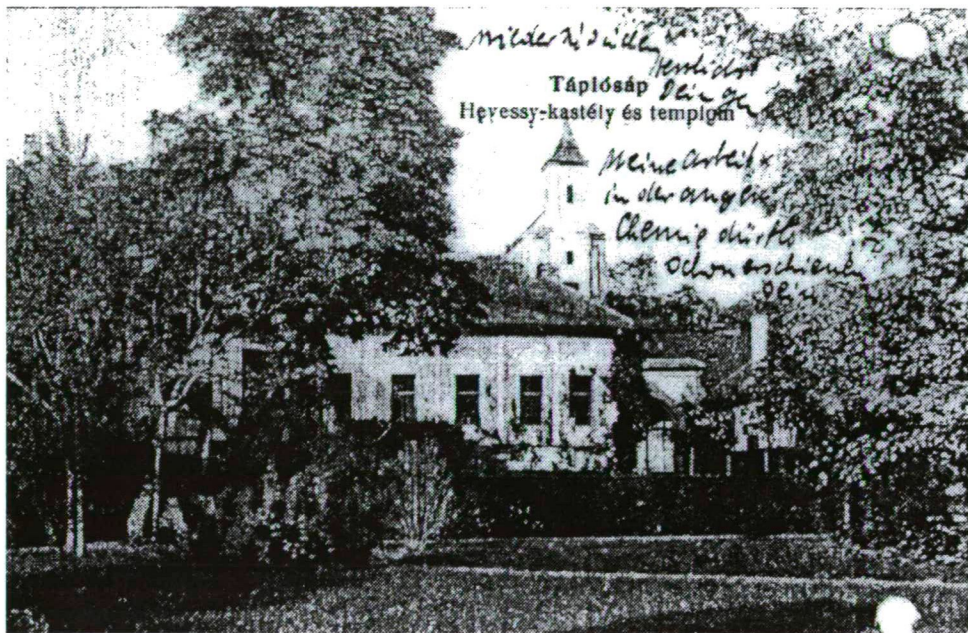 Herzlichst
Tápiósáp
Hevessy-kastély és templom
Meine Arbeit
in der angew
Chemie dürfte
schon erschienen
sein